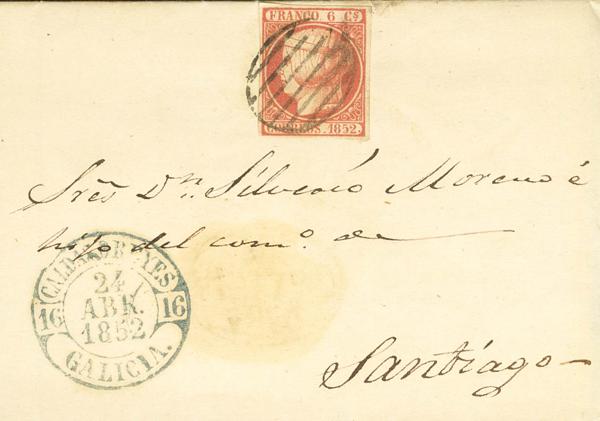 FRANCO 6 Cs
CORREOS. 1852.
Sres Dn. Silverio Moreno é
hijo del como. de
CALDAS DE REYES
16 24 16
ABR.
1852
GALICIA.
Santiago